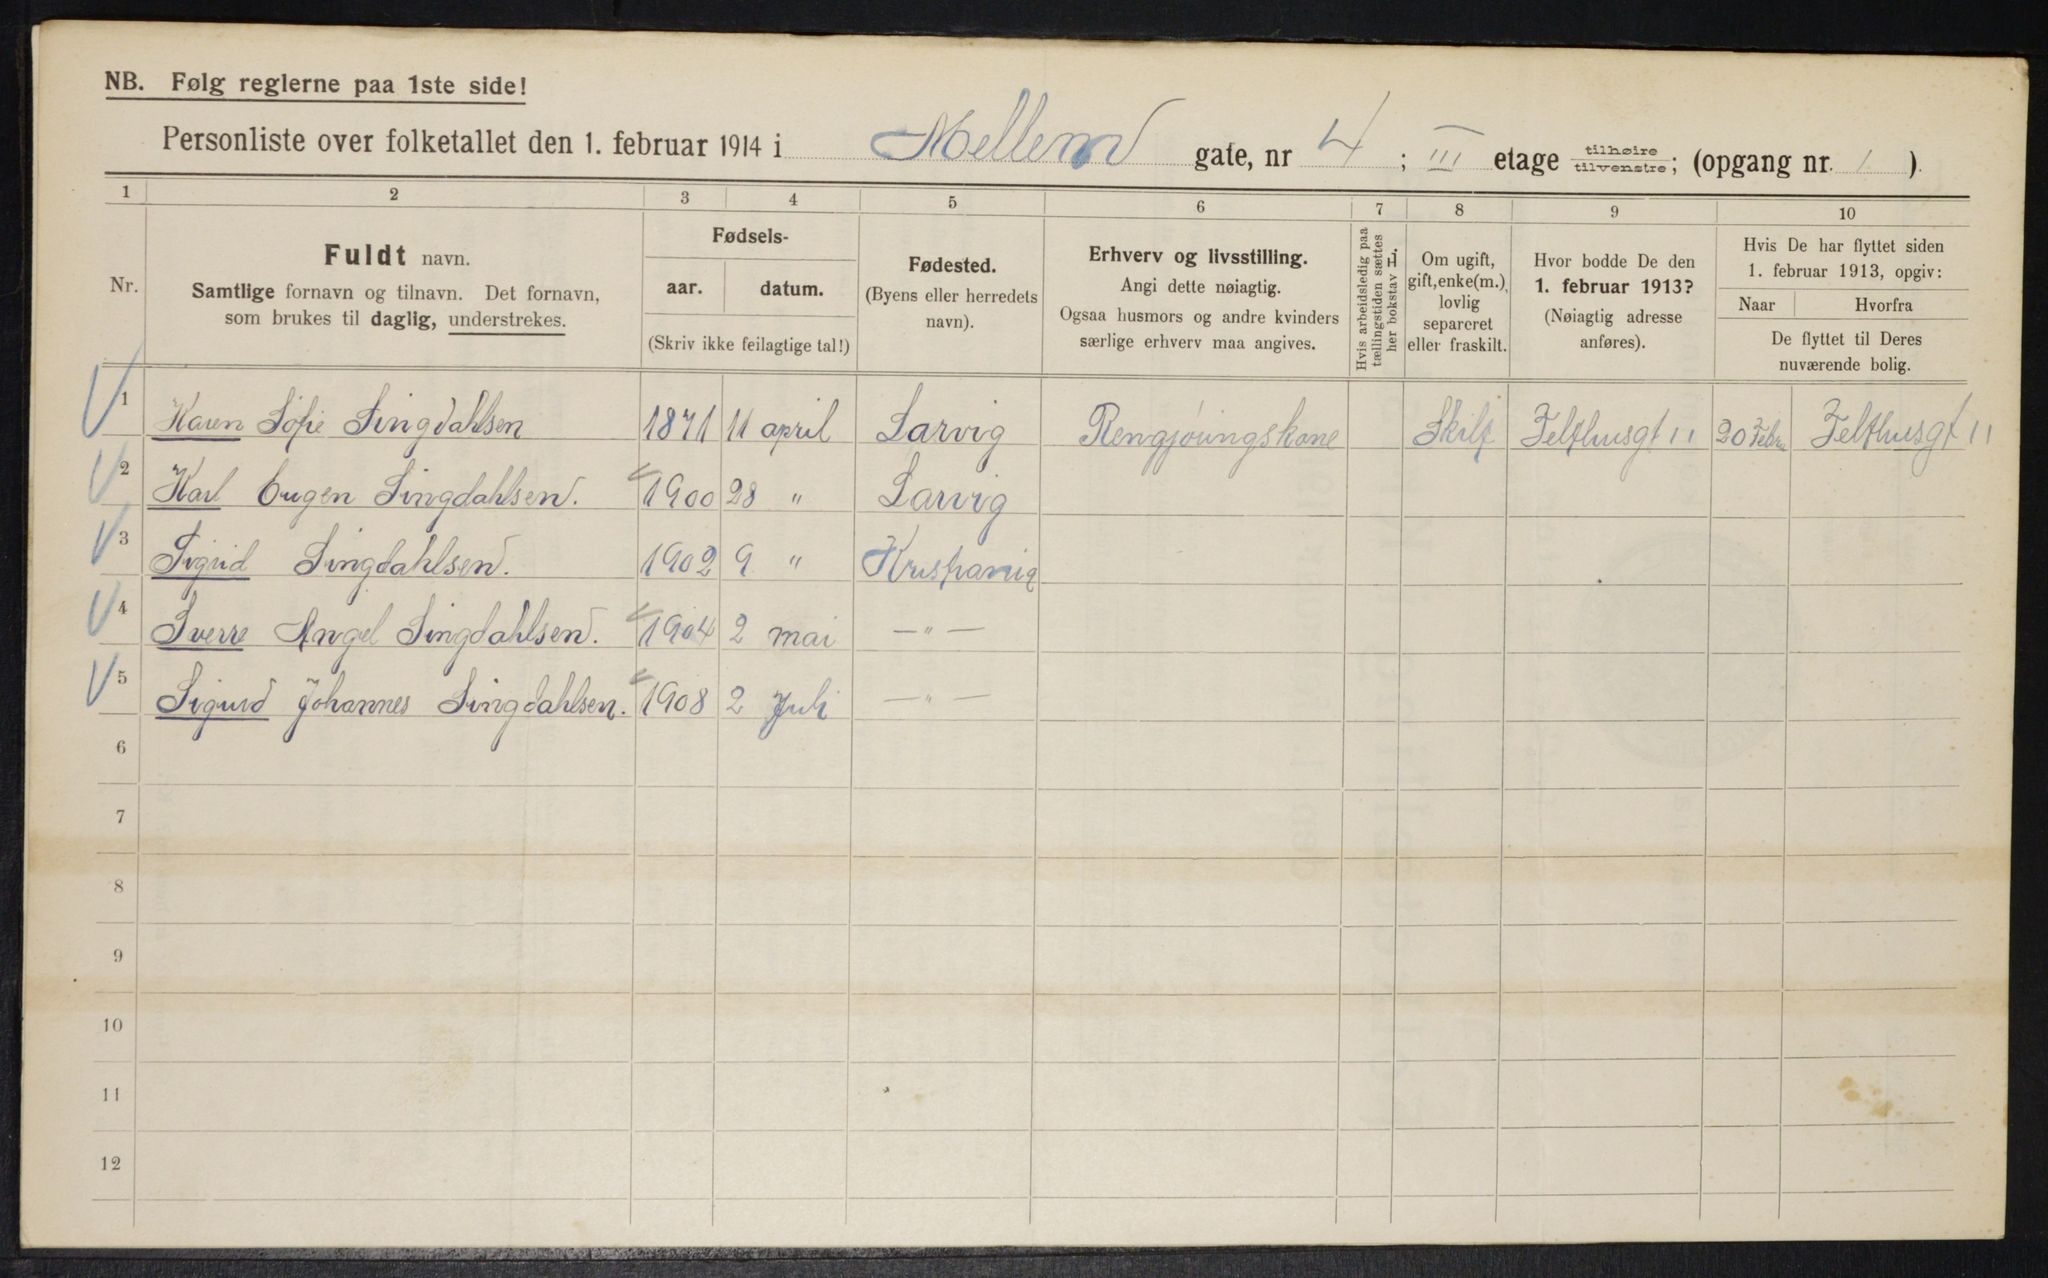 NB. Følg reglerne paa 1ste side!
Personliste over folketallet den 1. februar 1914 i Mellem gate, nr 4; III etage tilhøire/tilvenstre; (opgang nr. 1).
1 2 3 4 5 6 7 8 9 10
Nr.
Fuldt navn.
Samtlige fornavn og tilnavn. Det fornavn,
som brukes til daglig, understrekes.
Fødsels-
aar. datum.
(Skriv ikke feilagtige tal!)
Fødested.
(Byens eller herredets
navn).
Erhverv og livsstilling.
Angi dette nøiagtig.
Ogsaa husmors og andre kvinders
særlige erhverv maa angives.
Hvis arbeidsledig paa
tællingstiden sættes
her bokstav L.
Om ugift,
gift, enke(m.),
lovlig
separeret
eller fraskilt.
Hvor bodde De den
1. februar 1913?
(Nøiagtig adresse
anføres).
Hvis De har flyttet siden
1. februar 1913, opgiv:
Naar Hvorfra
De flyttet til Deres
nuværende bolig.
1 Karen Sofie Singdahlsen 1871 11 april Larvig Rengjøringskone Skilt Felthusgt 11 20 Febru Felthusgt 11
2 Karl Eugen Singdahlsen. 1900 28 " Larvig
3 Sigrid Singdahlsen. 1902 9 " Kristiania
4 Sverre Angel Singdahlsen. 1904 2 mai — " —
5 Sigurd Johannes Singdahlsen. 1908 2 Juli — " —
6
7
8
9
10
11
12